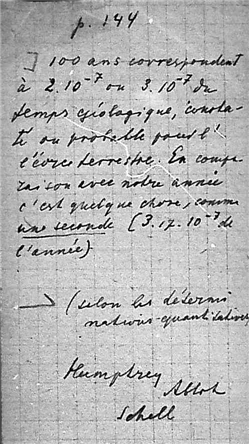 p. 144
] 100 ans correspondent
à 2.10⁻⁷ ou 3.10⁻⁷ du
temps géologique, consta-
té ou probable pour l'
l'écorce terrestre. En compa
raison avec notre année
c'est quelque chose, comme
une seconde (3.17.10⁻⁷ de
l'année)
(selon les détermi
nations quantitatives
Humphrey
Abbot
Schell